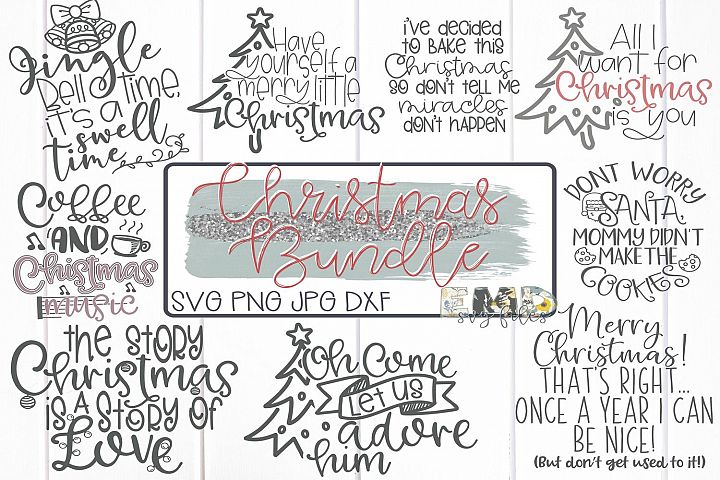 Jingle
Bell time,
it's a
swell
time
Have
yourself a
merry little
Christmas
i've decided
to bake this
Christmas
so don't tell me
miracles
don't happen
All I
want for
Christmas
is you
Coffee
AND
Chistmas
music
Christmas
Bundle
SVG PNG JPG DXF
EMD
svg files
DONT WORRY
SANTA
MOMMY DIDN'T
MAKE THE
COOKIES
the STORY
Christmas
iS A STORY OF
Love
Oh Come
Let us
adore
him
Merry
Christmas!
THAT'S RIGHT...
ONCE A YEAR I CAN
BE NICE!
(But don't get used to it!)